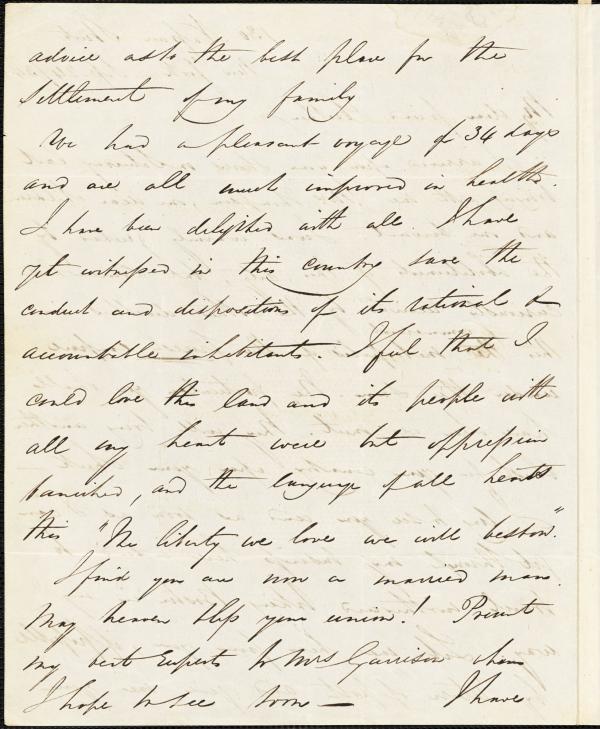 advice as to the best place for the
settlement of my family
We had a pleasant voyage of 34 days
and are all much improved in health.
I have been delighted with all I have
yet witnessed in this country save the
conduct and dispositions of its rational &
accountable inhabitants. I feel that I
could love this land and its people with
all my heart were but oppression
banished, and the language of all hearts
this "The liberty we love we will bestow".
I find you are now a married man.
May heaven bless your union! Present
my best respects to Mrs Garrison whom
I hope to see soon — I have